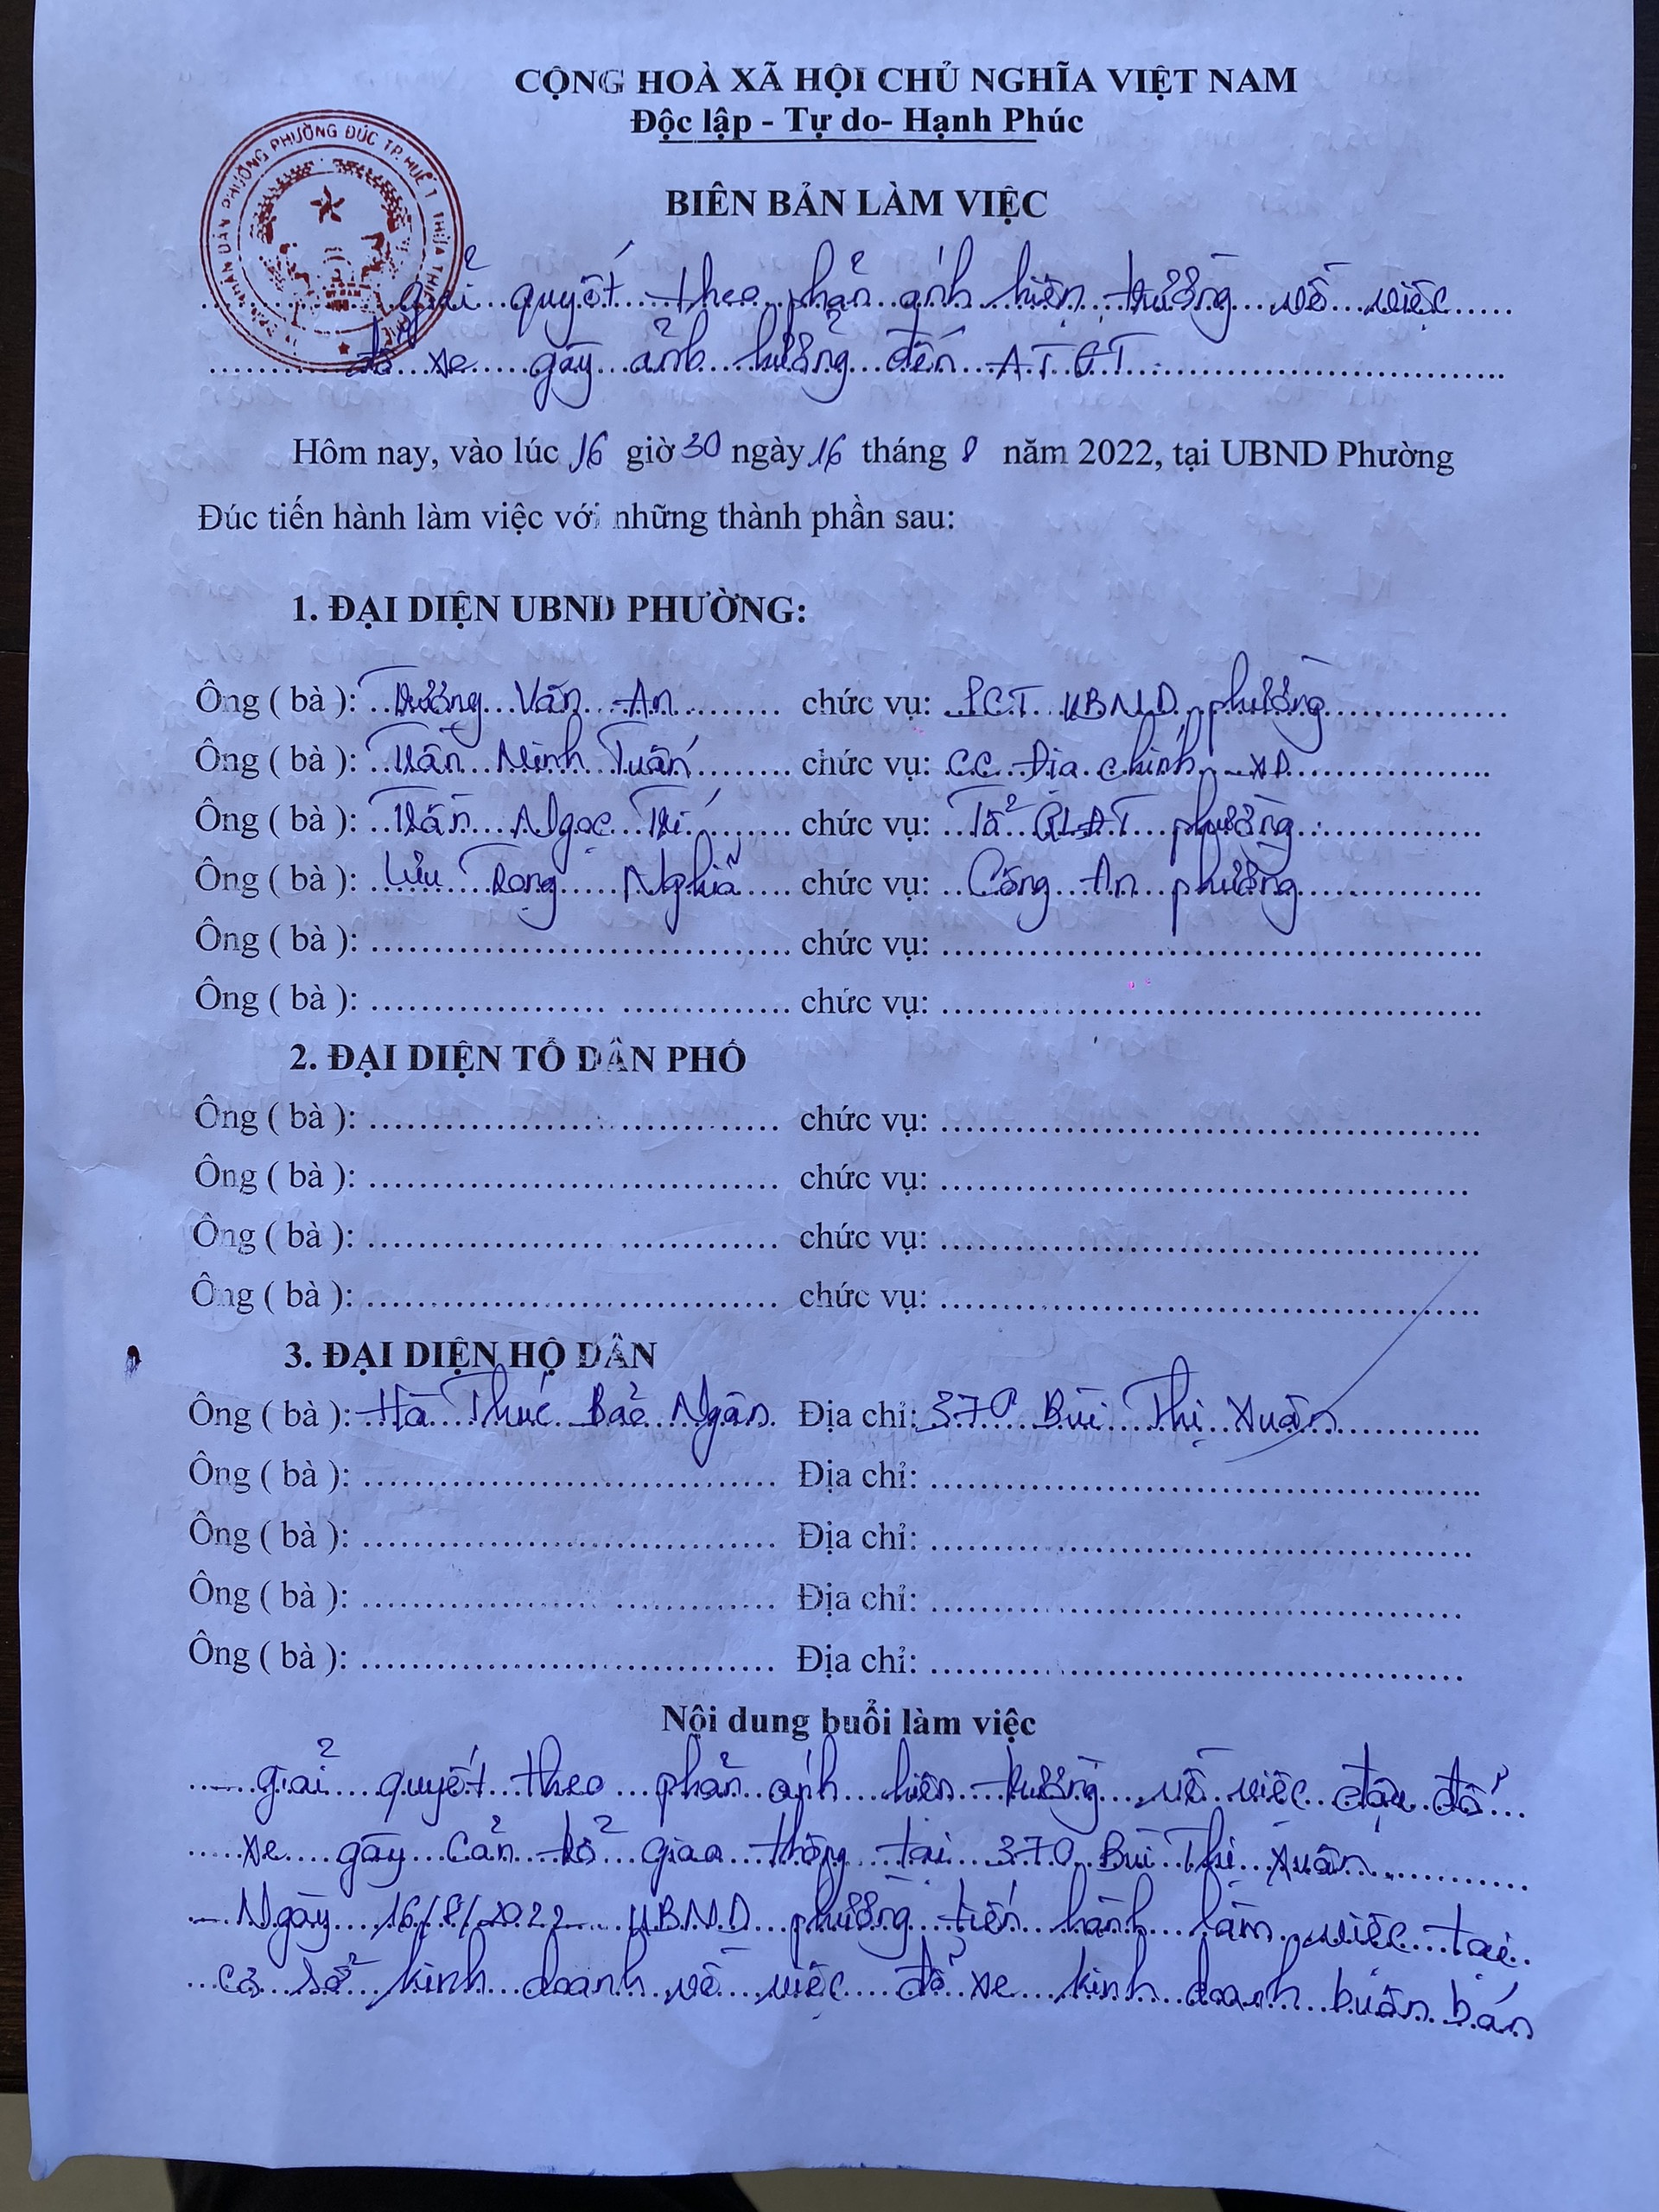 CỘNG HOÀ XÃ HỘI CHỦ NGHĨA VIỆT NAM
Độc lập - Tự do- Hạnh Phúc
NHÂN DÂN PHƯỜNG PHƯỜNG ĐÚC TP.HUẾ T. THỪA THIÊN
BIÊN BẢN LÀM VIỆC
giải quyết theo phản ánh hiện trường về việc
đỗ xe gây ảnh hưởng đến ATGT
Hôm nay, vào lúc 16 giờ 30 ngày 16 tháng 8 năm 2022, tại UBND Phường
Đúc tiến hành làm việc với những thành phần sau:
1. ĐẠI DIỆN UBND PHƯỜNG:
Ông ( bà ): Dương Văn An chức vụ: PCT UBND phường
Ông ( bà ): Trần Minh Tuấn chức vụ: CC Địa chính - XD
Ông ( bà ): Trần Ngọc Trí chức vụ: Tổ QLĐT phường
Ông ( bà ): Lưu Trọng Nghĩa chức vụ: Công An phường
Ông ( bà ): chức vụ:
Ông ( bà ): chức vụ:
2. ĐẠI DIỆN TỔ DÂN PHỐ
Ông ( bà ): chức vụ:
Ông ( bà ): chức vụ:
Ông ( bà ): chức vụ:
Ông ( bà ): chức vụ:
3. ĐẠI DIỆN HỘ DÂN
Ông ( bà ): Hà Thúc Bảo Ngân Địa chỉ: 370 Bùi Thị Xuân
Ông ( bà ): Địa chỉ:
Ông ( bà ): Địa chỉ:
Ông ( bà ): Địa chỉ:
Ông ( bà ): Địa chỉ:
Nội dung buổi làm việc
- giải quyết theo phản ánh hiện trường về việc đậu đỗ
xe gây cản trở giao thông tại 370 Bùi Thị Xuân
- Ngày 16/8/2022 UBND phường tiến hành làm việc tại
cơ sở kinh doanh về việc đỗ xe kinh doanh buôn bán